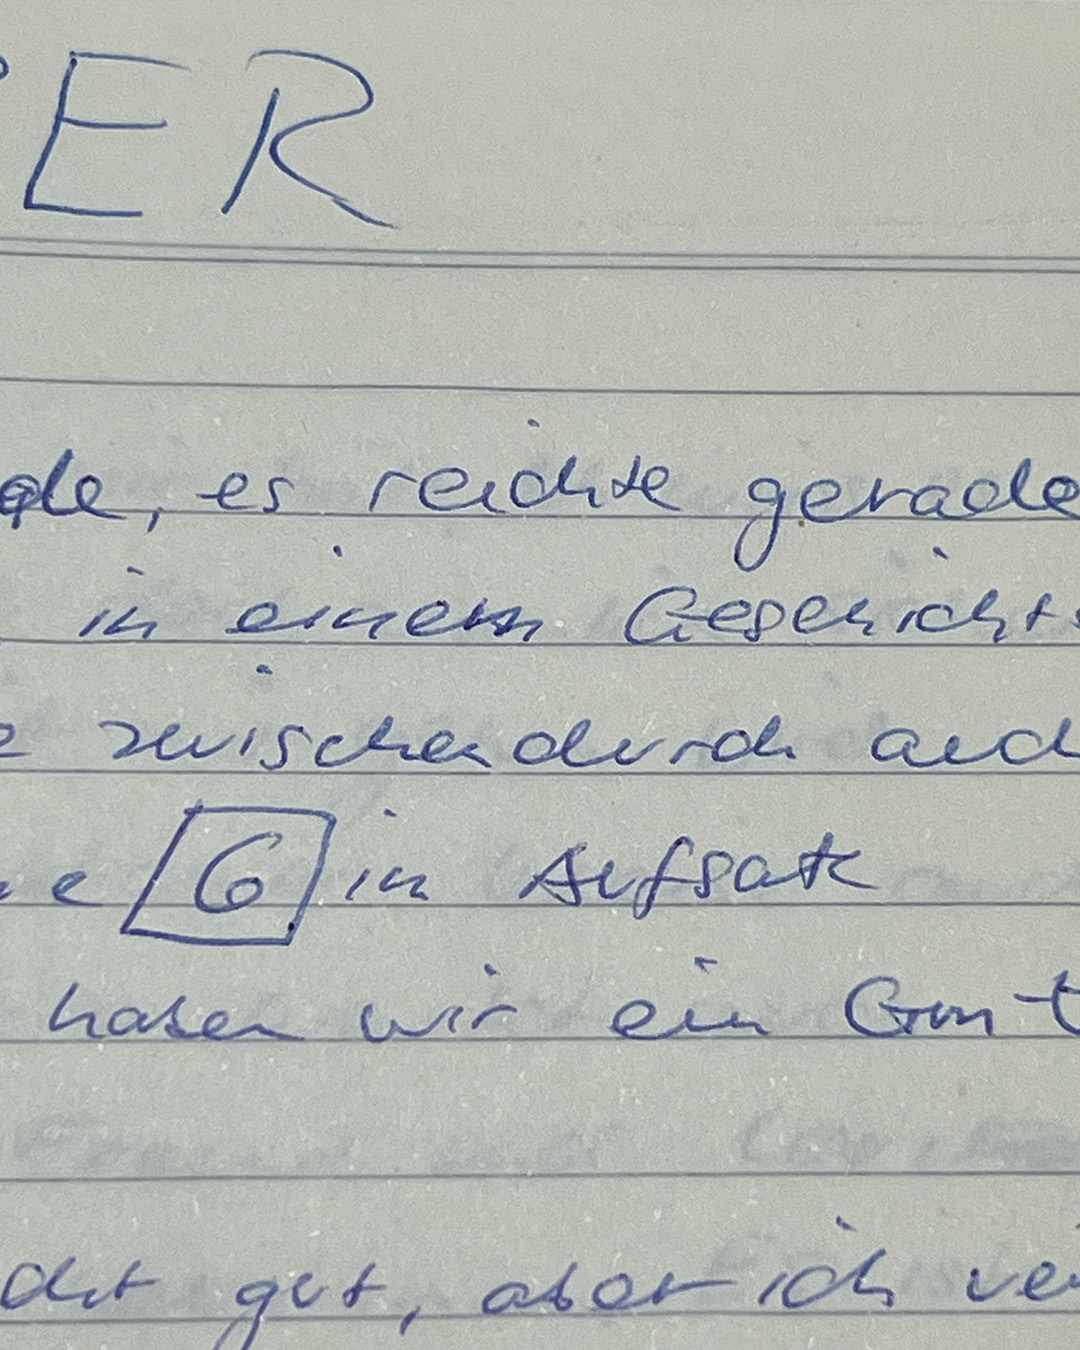 ER
es reichte gerade
in einem Geschichts
zwischendurch auch
6 in Aufsatz
haben wir ein Gut
gut, aber ich ver